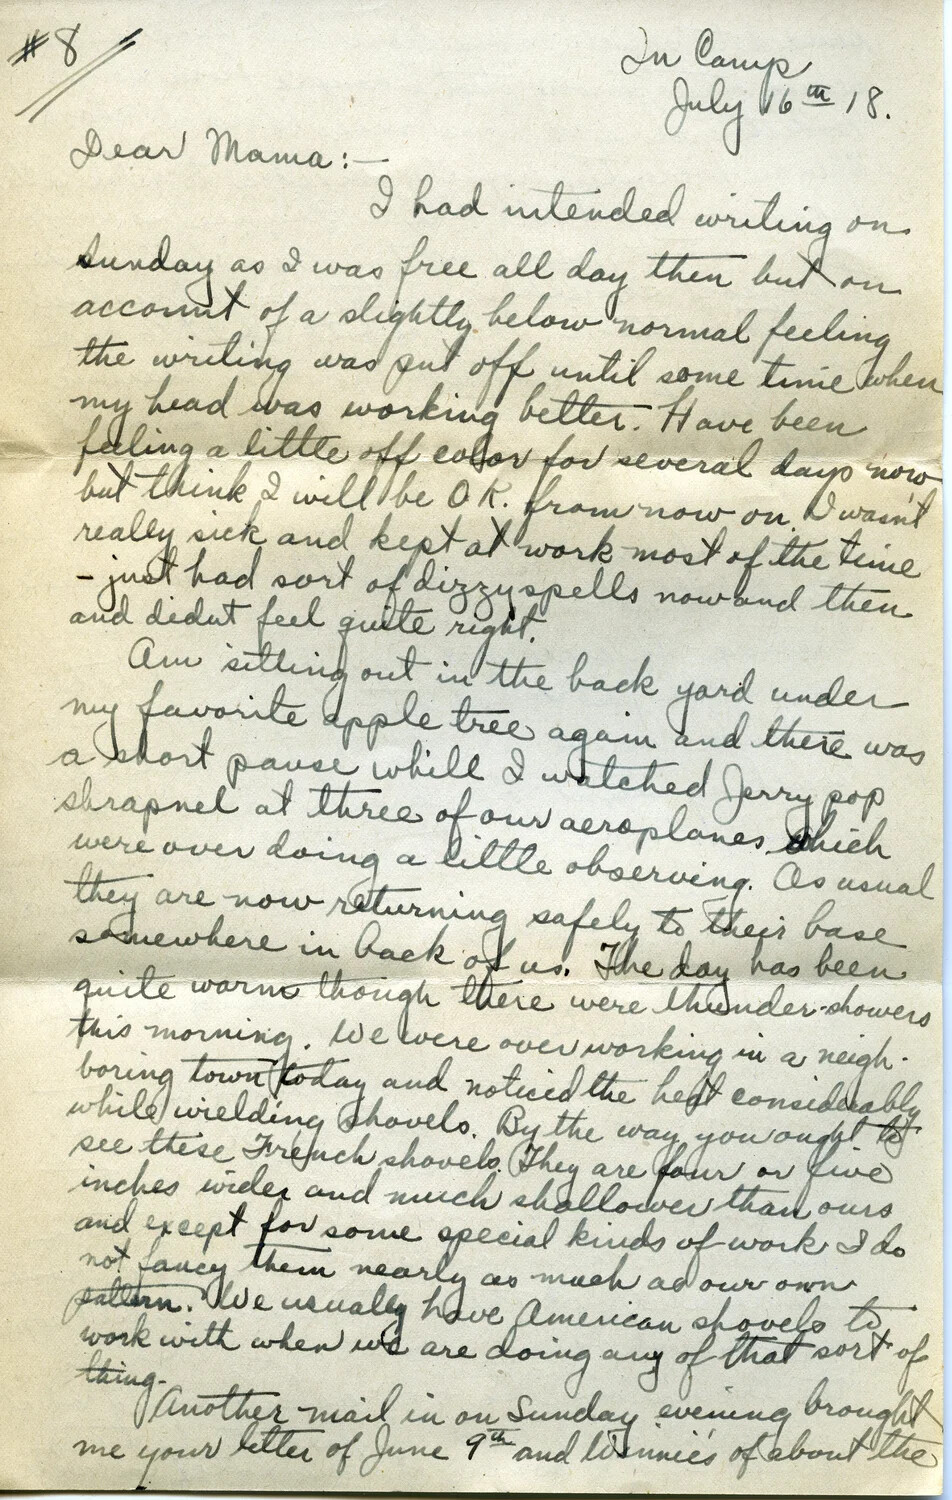 #8
In Camp
July 16th 18.
Dear Mama:—
I had intended writing on
Sunday as I was free all day then but on
account of a slightly below normal feeling
the writing was put off until some time when
my head was working better. Have been
feeling a little off color for several days now
but think I will be O.K. from now on. I wasn't
really sick and kept at work most of the time
– just had sort of dizzy spells now and then
and didnt feel quite right.
Am sitting out in the back yard under
my favorite apple tree again and there was
a short pause while I watched Jerry pop
shrapnel at three of our aeroplanes which
were over doing a little observing. As usual
they are now returning safely to their base
somewhere in back of us. The day has been
quite warm though there were thunder-showers
this morning. We were over working in a neigh-
boring town today and noticed the heat considerably
while wielding shovels. By the way you ought to
see these French shovels. They are four or five
inches wider and much shallower than ours
and except for some special kinds of work I do
not fancy them nearly as much as our own
pattern. We usually have American shovels to
work with when we are doing any of that sort of
thing.
Another mail in on Sunday evening brought
me your letter of June 9th and Winnie's of about the